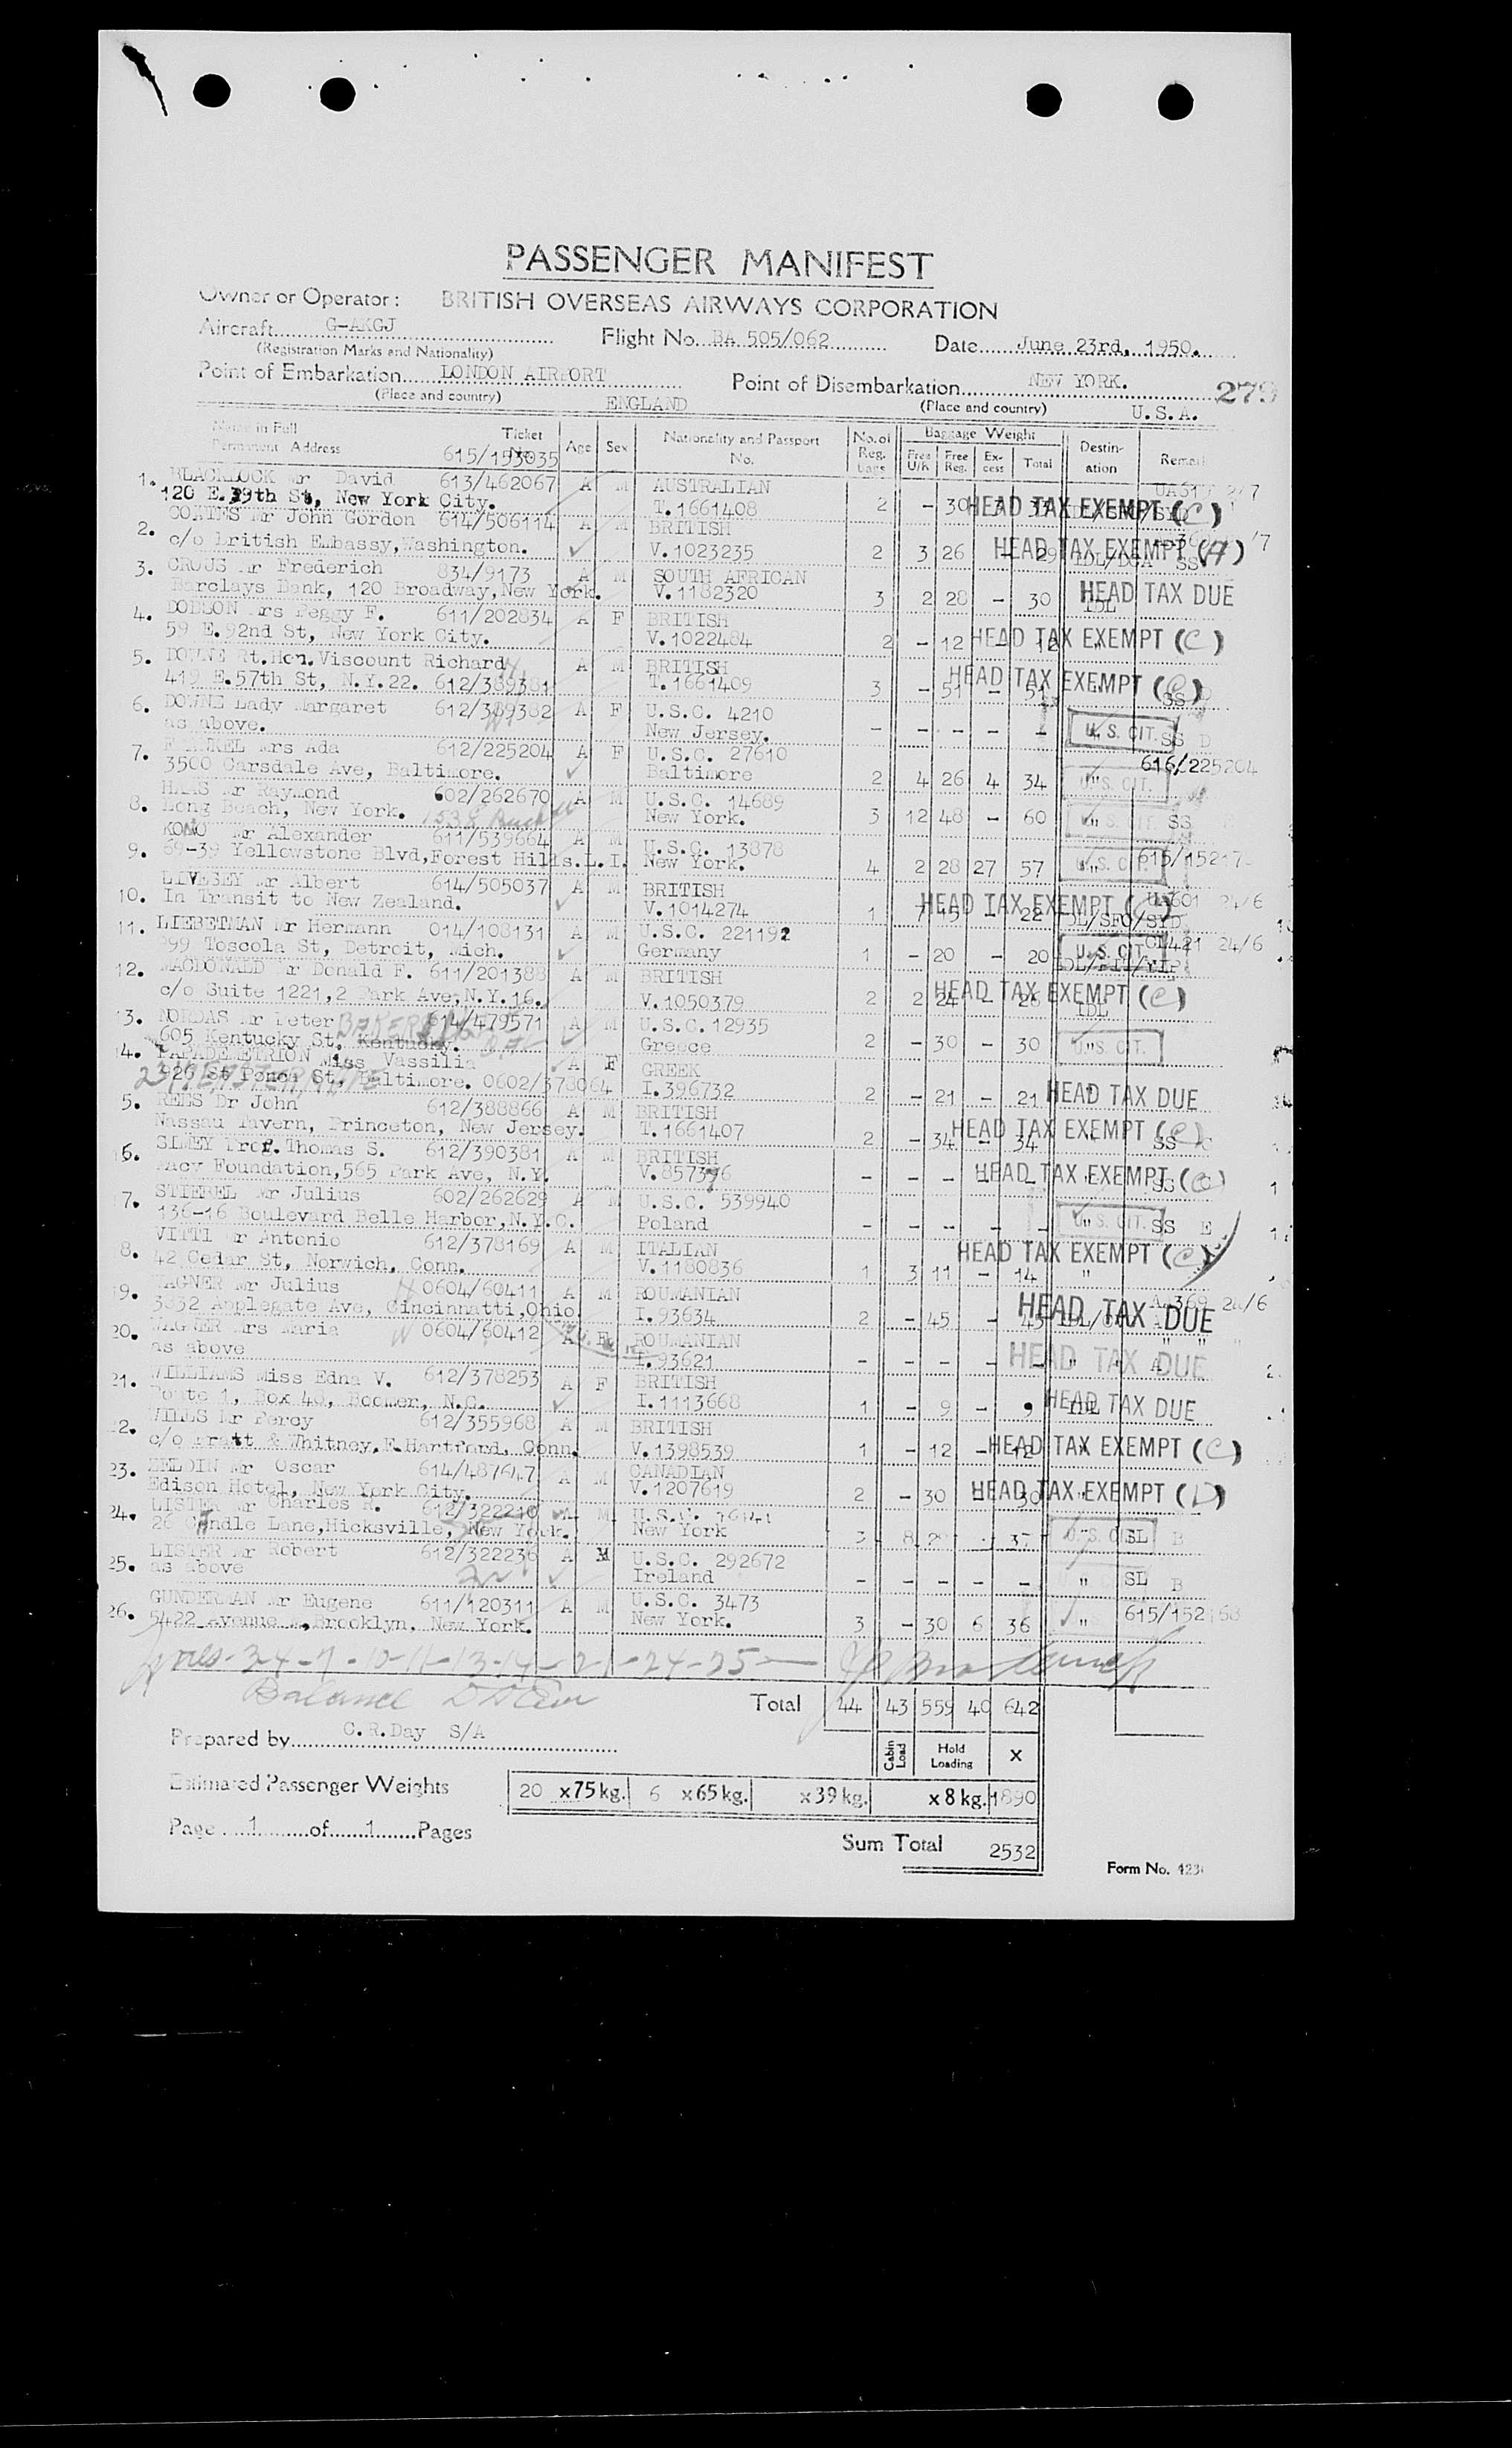 PASSENGER MANIFEST
Owner or Operator: BRITISH OVERSEAS AIRWAYS CORPORATION
Aircraft G-AKGJ Flight No. BA 505/062 Date June 23rd, 1950.
(Registration Marks and Nationality)
Point of Embarkation LONDON AIRPORT Point of Disembarkation NEW YORK. 279
(Place and country) ENGLAND (Place and country) U.S.A.
Name in Full Ticket No. Age Sex Nationality and Passport No. No. of Reg. bags Baggage Weight Destination Remarks
Permanent Address 615/153035 Free U/K Free Reg. Excess Total
1. BLACKLOCK Mr David 613/462067 A M AUSTRALIAN
120 E.39th St, New York City. T.1661408 2 - 30 HEAD TAX EXEMPT (C)
2. Mr John Gordon 614/506114 A M BRITISH
c/o British Embassy, Washington. V.1023235 2 3 26 - 29 HEAD TAX EXEMPT (A) IDL/DCA SS
3. CROUS Mr Frederich 834/9173 A M SOUTH AFRICAN
Barclays Bank, 120 Broadway, New York. V.1182320 3 2 28 - 30 IDL HEAD TAX DUE
4. DOBSON Mrs Peggy F. 611/202834 A F BRITISH
59 E.92nd St, New York City. V.1022484 2 - 12 - 12 " HEAD TAX EXEMPT (C)
5. DOWNE Rt.Hon.Viscount Richard A M BRITISH
419 E.57th St, N.Y.22. 612/389381 T.1661409 3 - 51 - 51 " HEAD TAX EXEMPT (C) SS D
6. DOWNE Lady Margaret 612/389382 A F U.S.C. 4210
as above. New Jersey. - - - - - " U.S. CIT. SS D
7. Mrs Ada 612/225204 A F U.S.C. 27610 616/225204
3500 Carsdale Ave, Baltimore. Baltimore 2 4 26 4 34 " U.S. CIT.
8. HAAS Mr Raymond 602/262670 A M U.S.C. 14689
Long Beach, New York. New York. 3 12 48 - 60 " U.S. CIT. SS
9. KONO Mr Alexander 611/539664 A M U.S.C. 13878
69-39 Yellowstone Blvd, Forest Hills.L.I. New York. 4 2 28 27 57 " U.S. CIT. 615/15217
10. LIVESEY Mr Albert 614/505037 A M BRITISH UA601 24/6
In Transit to New Zealand. V.1014274 1 7 15 - 22 IDL/SFO/SYD HEAD TAX EXEMPT
11. LIEBETMAN Mr Hermann 014/108131 A M U.S.C. 221192 24/6
Toscola St, Detroit, Mich. Germany 1 - 20 - 20 U.S. CIT.
12. MACDONALD Mr Donald F. 611/201388 A M BRITISH
c/o Suite 1221, 2 Park Ave, N.Y.16. V.1050379 2 2 24 - 26 IDL HEAD TAX EXEMPT (C)
13. NORDAS Mr Peter 614/479571 A M U.S.C. 12935
605 Kentucky St. Kentucky. Greece 2 - 30 - 30 " U.S. CIT.
14. Miss Vassilia A F GREEK
926 St Ponca St, Baltimore. 0602/378064 I.396732 2 - 21 - 21 " HEAD TAX DUE
5. REES Dr John 612/388866 A M BRITISH
Nassau Tavern, Princeton, New Jersey. T.1661407 2 - 34 - 34 " HEAD TAX EXEMPT (C) SS C
6. SIMEY Prof. Thomas S. 612/390381 A M BRITISH
Macy Foundation, 565 Park Ave, N.Y. V.857396 - - - - - " HEAD TAX EXEMPT (C) SS
7. STIEBEL Mr Julius 602/262629 A M U.S.C. 539940
136-16 Boulevard Belle Harbor, N.Y.C. Poland - - - - - " U.S. CIT. SS E
8. VITTI Mr Antonio 612/378169 A M ITALIAN
42 Cedar St, Norwich, Conn. V.1180836 1 3 11 - 14 " HEAD TAX EXEMPT (C)
9. WAGNER Mr Julius 0604/60411 A M ROUMANIAN AA369 24/6
3832 Applegate Ave, Cincinnatti, Ohio. I.93634 2 - 45 - 45 HEAD TAX DUE
20. WAGNER Mrs Maria 0604/60412 A F ROUMANIAN " "
as above I.93621 - - - - - " " A HEAD TAX DUE
21. WILLIAMS Miss Edna V. 612/378253 A F BRITISH
Route 1, Box 48, Boomer, N.C. I.1113668 1 - 9 - 9 IDL HEAD TAX DUE
22. WILLS Mr Percy 612/355968 A M BRITISH
c/o Pratt & Whitney, E.Hartford, Conn. V.1398539 1 - 12 - 12 " HEAD TAX EXEMPT (C)
23. ZELDIN Mr Oscar 614/487647 A M CANADIAN
Edison Hotel, New York City. V.1207619 2 - 30 - 30 " HEAD TAX EXEMPT (D)
24. LISTER Mr Charles R. 612/322210 A M U.S.C.
26 Candle Lane, Hicksville, New York. New York 3 8 37 " U.S. CIT. SL B
25. LISTER Mr Robert 612/322236 A M U.S.C. 292672
as above Ireland - - - - - " SL B
26. GUNDERMAN Mr Eugene 611/120311 A M U.S.C. 3473
5422 Avenue, Brooklyn, New York. New York. 3 - 30 6 36 " 615/152168
Balance
Total 44 43 559 40 642
Prepared by C.R.Day S/A
Cabin Load Hold Loading X
Estimated Passenger Weights 20 x75 kg. 6 x65 kg. x39 kg. x8 kg. 1890
Page 1 of 1 Pages
Sum Total 2532
Form No.